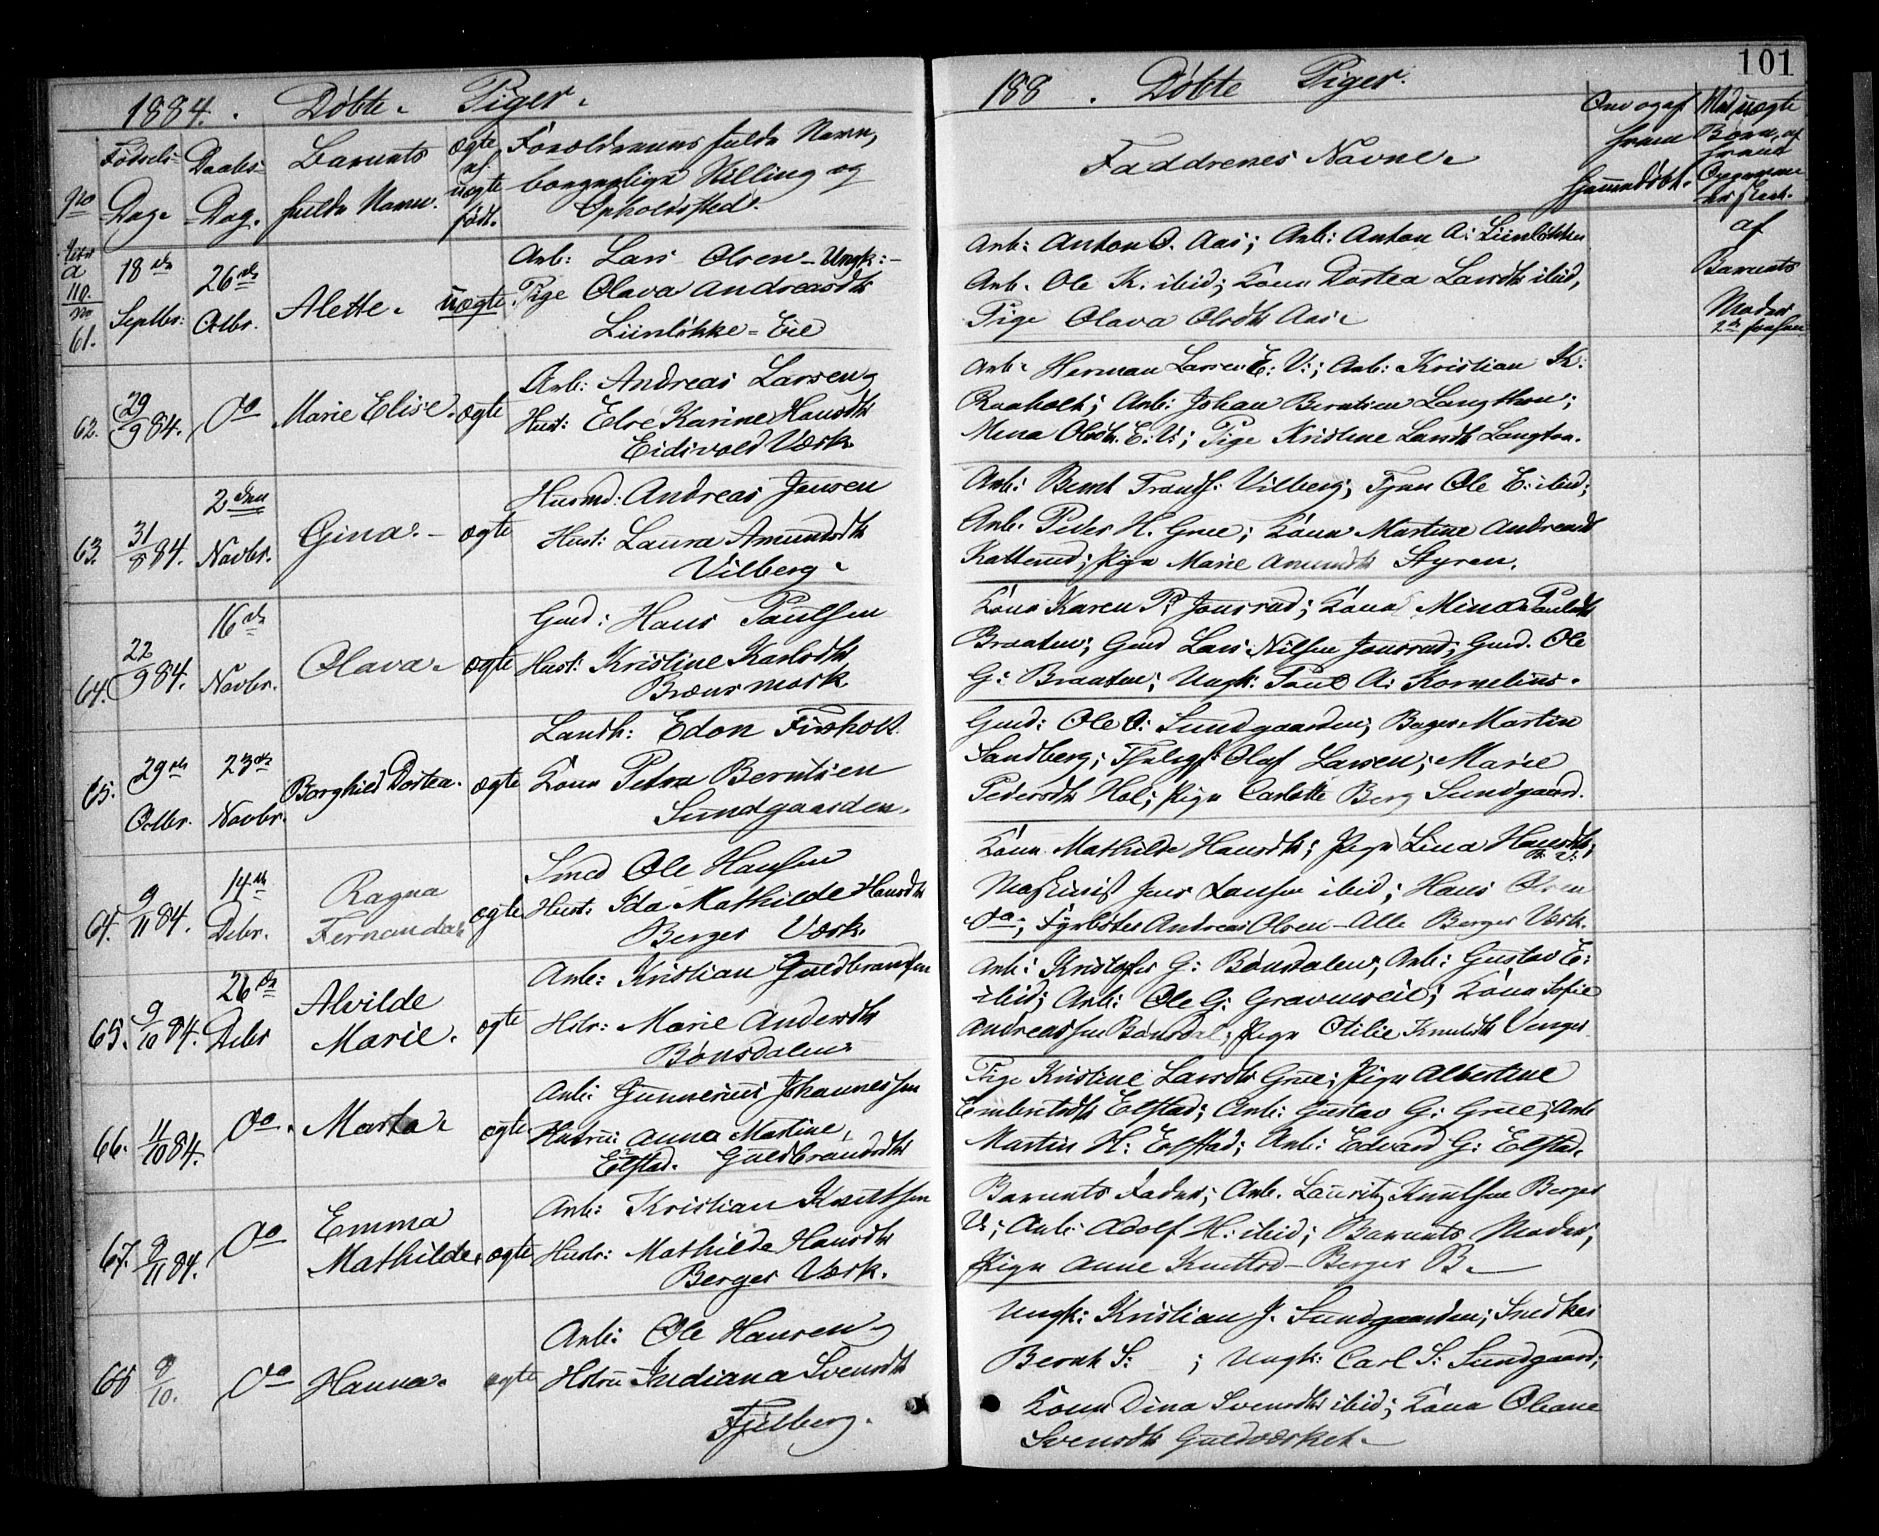 1884. Døbte Piger.
No
Fødsels-
Dag.
Daabs-
Dag.
Barnets
fulde Navn.
ægte
el.
uægte
født.
Forældrenes fulde Navn,
borgerlige Stilling og
Opholdssted.
61.
18de
Septbr.
26de
Octbr.
Alette.
uægte
Arb: Lars Olsen - Ungk: -
Pige Olava Andreasdtr
Liinløkke - Eie
62.
29/9 84.
Do
Marie Elise.
ægte
Arb: Andreas Larsen
Hust: Elre Karine Hansdtr
Eidsvold Værk
63.
31/8 84.
2den
Novbr.
Gina.
ægte
Husmd: Andreas Jensen
Hust: Laura Amundsdtr
Vilberg
64.
22/9 84.
16de
Novbr.
Olava.
ægte
Gmd: Hans Paulsen
Hust: Kristine Karlsdtr
65.
29de
Octbr.
23de
Novbr.
Borghild Dortea.
ægte
Landh: Edon
Kone Petra Berntsen
Sundgaarden.
64.
9/11 84.
14de
Debr.
Ragna
Fernanda
ægte
Smed Ole Hansen
Hust: Ida Mathilde Hansdtr
Berger Værk.
65.
9/10 84.
26de
Debr
Alvilde
Marie.
ægte
Arb: Kristian Guldbransen
Hstr: Marie Andersdtr
Bønsdalen
66.
11/10 84.
Do.
Marta.
ægte
Arb: Gunnerius Johannessen
Hustru: Anna Martine
Elstad. Guldbrandsdtr
67.
9/11 84.
Do
Emma
Mathilde.
ægte
Arb: Kristian Knutsen
Hustr: Mathilde Hansdtr
Berger Værk.
68
8/10.
Do
Hanna.
ægte
Arb: Ole Hansen
Hstru Indiana Svensdtr
188 . Døbte Piger.
101
Faddrenes Navne.
Om og af
hvem
hjemmedøbt.
Ved uægte
Børn, af
hvad
af
Barnets
Moder
Arb: Anton O. Aas; Arb: Anton A: Liinløkken
Arb. Ole K. ibid; Kone Dortea Larsdtr ibid,
Pige Olava Olsdtr Aas.
Arb. Herman Larsen E: V:; Arb: Kristian K:
Raaholt; Arb: Johan Berntsen Langthon;
Mina Olsdtr. E: V:; Pige Kristine Larsdtr Langton.
Arb: Bernt Trondh: Vilberg; Tjener Ole E: ibid;
Arb. Peder H. Grue; Kone Martine Andreasdtr
Kone Karen P: Jønsrud; Kone Mina Paulsdtr
Braaten; Gmd Lars Nilsen Jønsrud; Gmd. Ole
G: Braaten; Ungk: Paul A: Kornelius.
Gmd: Ole O: Sundgaarden; Bager Martin
Sandberg; Olaf Larsen; Marie
Pedersdtr Hol; Pige Carlotte Berg Sundgaard.
Kone Mathilde Hansdtr; Pige Lina Hansdtr;
B: V:
Maskinist Jens Larsen ibid; Hans Olsen
Do; Fyrbøter Andreas Olsen - Alle Berger Værk.
Arb: Kristofer G: Bønsdalen; Arb: Gustav E:
ibid; Arb: Ole G: Kone Sofie
Andreassen Bønsdal; Pige Otilie Knutsdtr Venger
Pige Kristine Larsdtr Grue; Pige Albertine
Embretsdtr Elstad; Arb: Gustav G: Grue; Arb
Martin H: Elstad; Arb: Edvard G: Elstad.
Barnets Fader; Arb. Lauritz Knutsen Berger
V:; Arb: Adolf H: ibid; Barnets Moder;
Pige Anne Knutsd - Berger B.
Ungk: Kristian J. Sundgaarden; Snedker
Bernh S: ; Ungk: Carl S: Sundgaard;
Kone Dina Svensdtr ibid; Kone Oleane
Svensdtr Guldværket